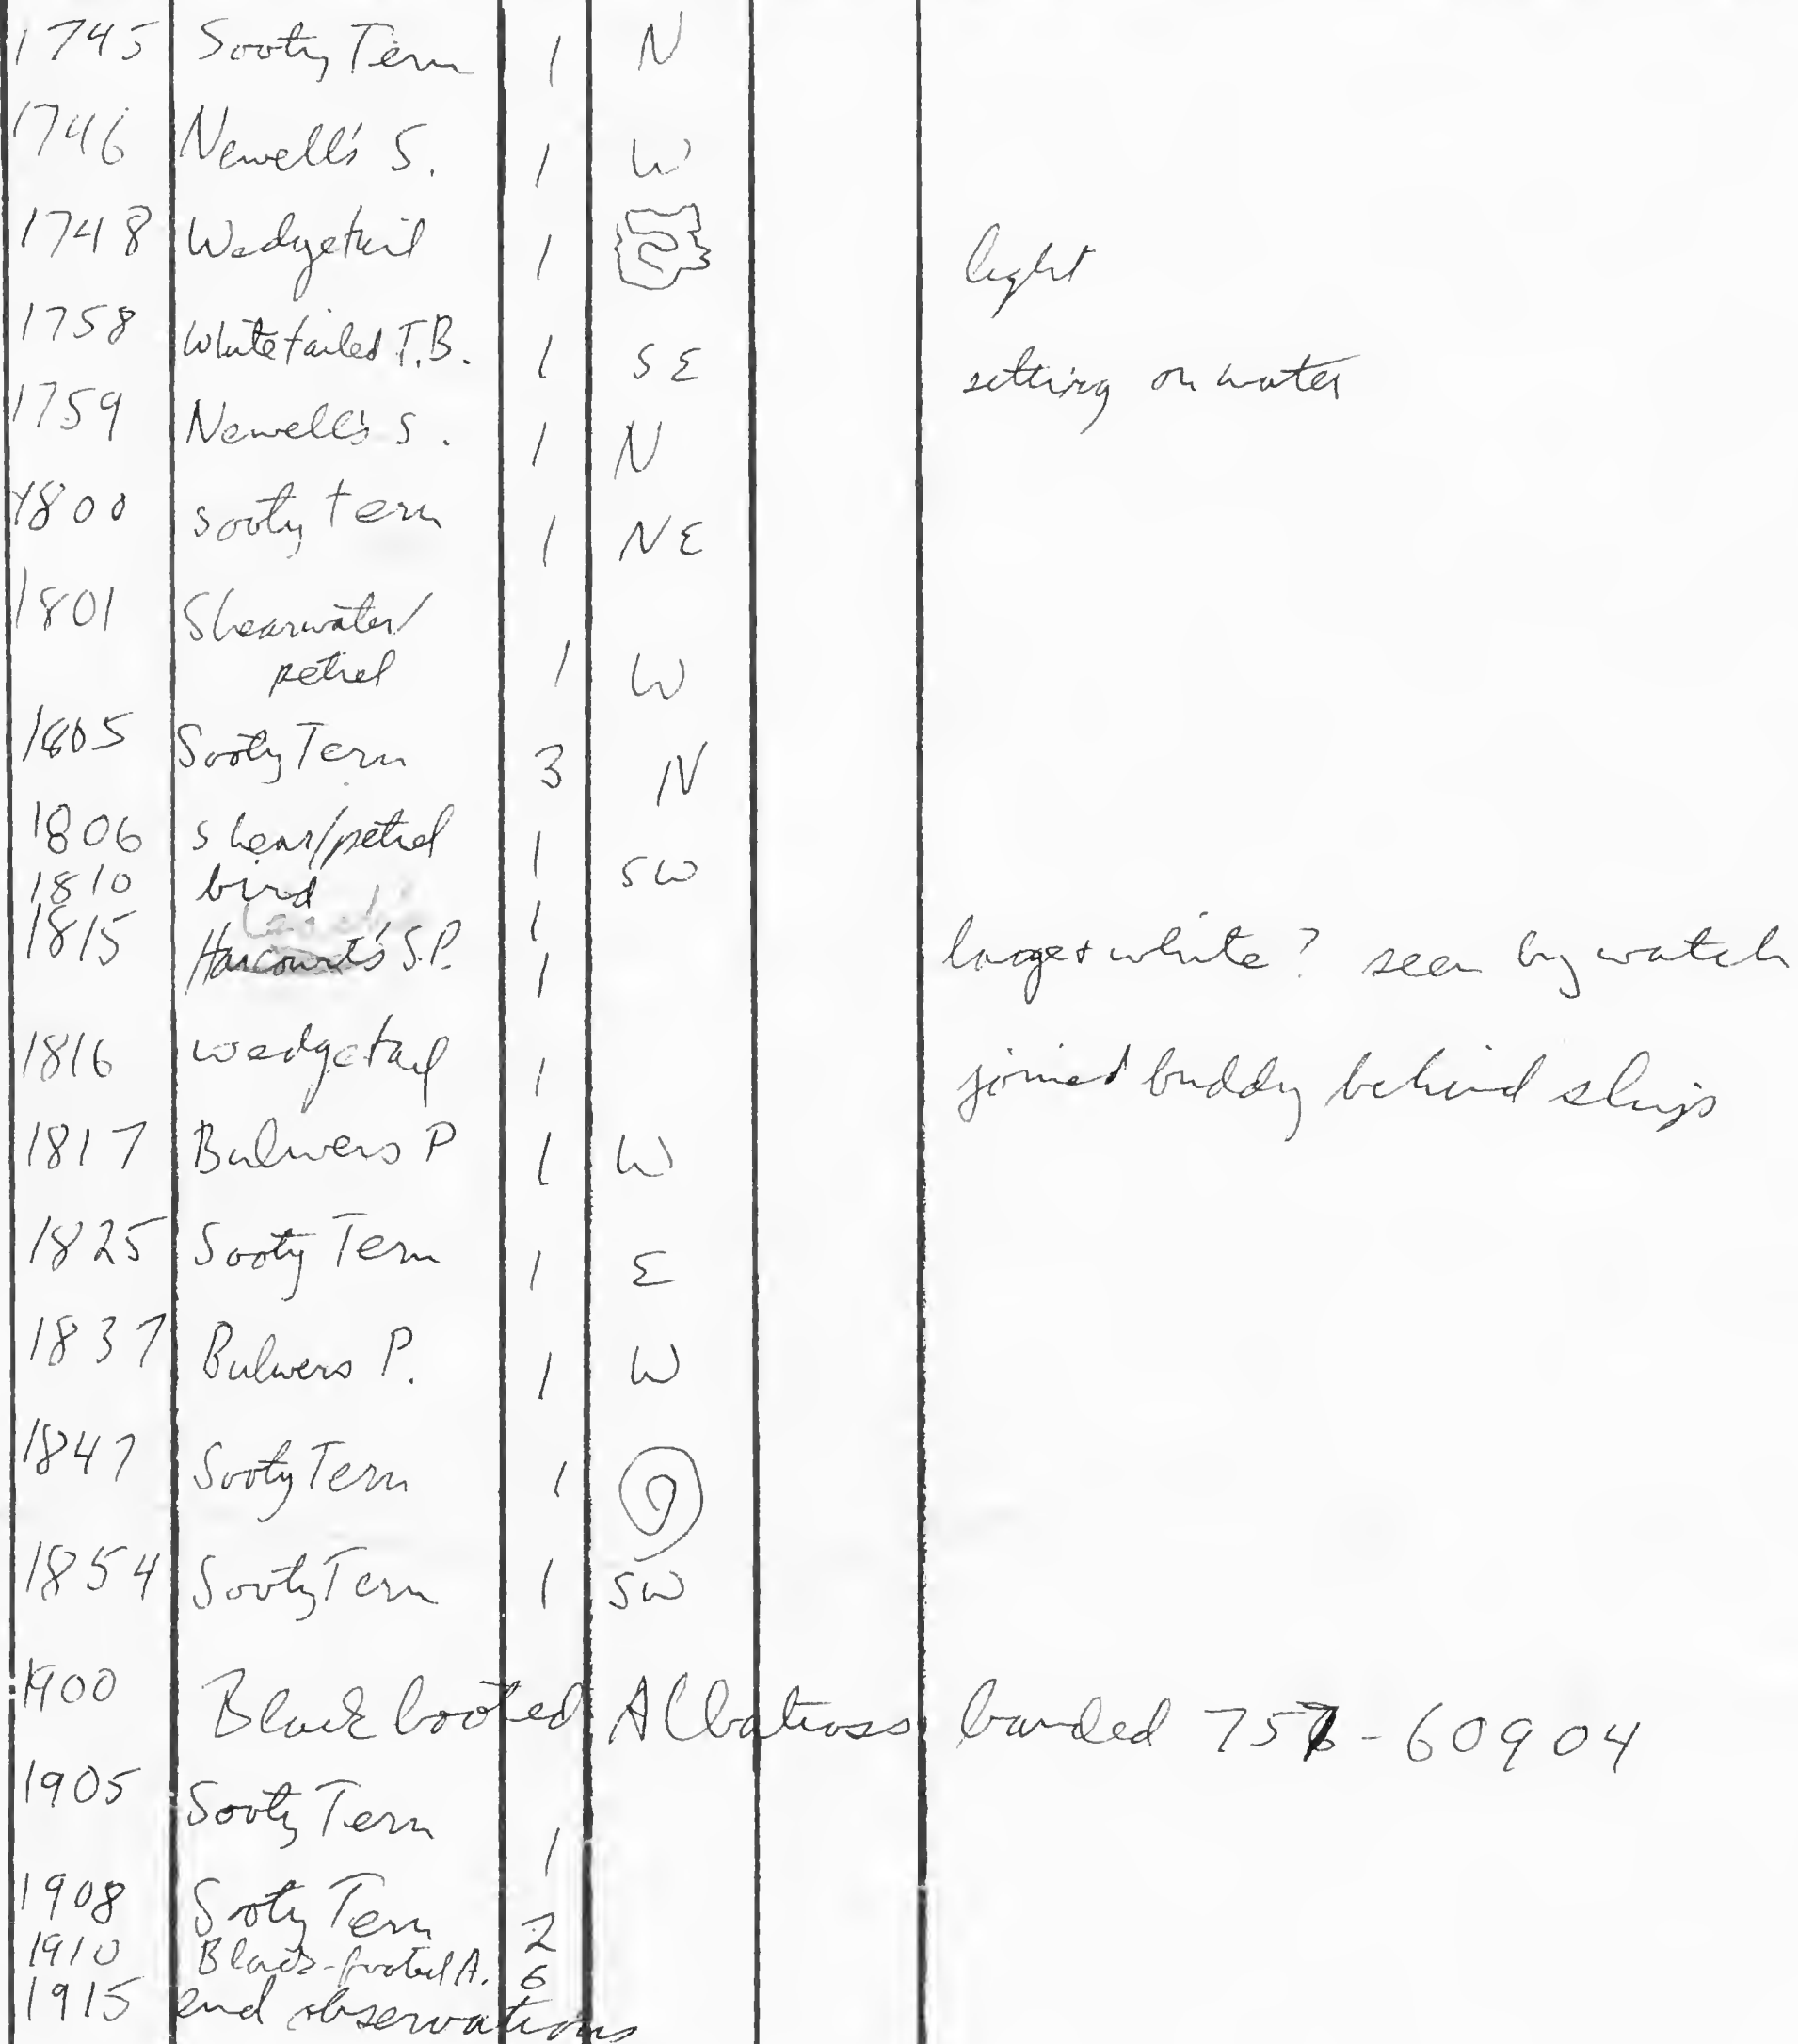 1745 Sooty Tern 1 N
1746 Newell's S. 1 W
1748 Wedgetail 1 light
1758 Whitetailed T.B. 1 SE sitting on water
1759 Newell's S. 1 N
1800 sooty tern 1 NE
1801 Shearwater/
petrel 1 W
1805 Sooty Tern 3 N
1806 shear/petrel 1 SW
1810 bird 1
1815 Harcourt's S.P. 1 large & white? seen by watch
1816 wedgetail 1 joined buddy behind ship
1817 Bulwers P 1 W
1825 Sooty Tern 1 E
1837 Bulwers P. 1 W
1847 Sooty Tern 1
1854 Sooty Tern 1 SW
1900 Black booted Albatross banded 757-60904
1905 Sooty Tern 1
1908 Sooty Tern 2
1910 Black-footed A. 6
1915 end observations